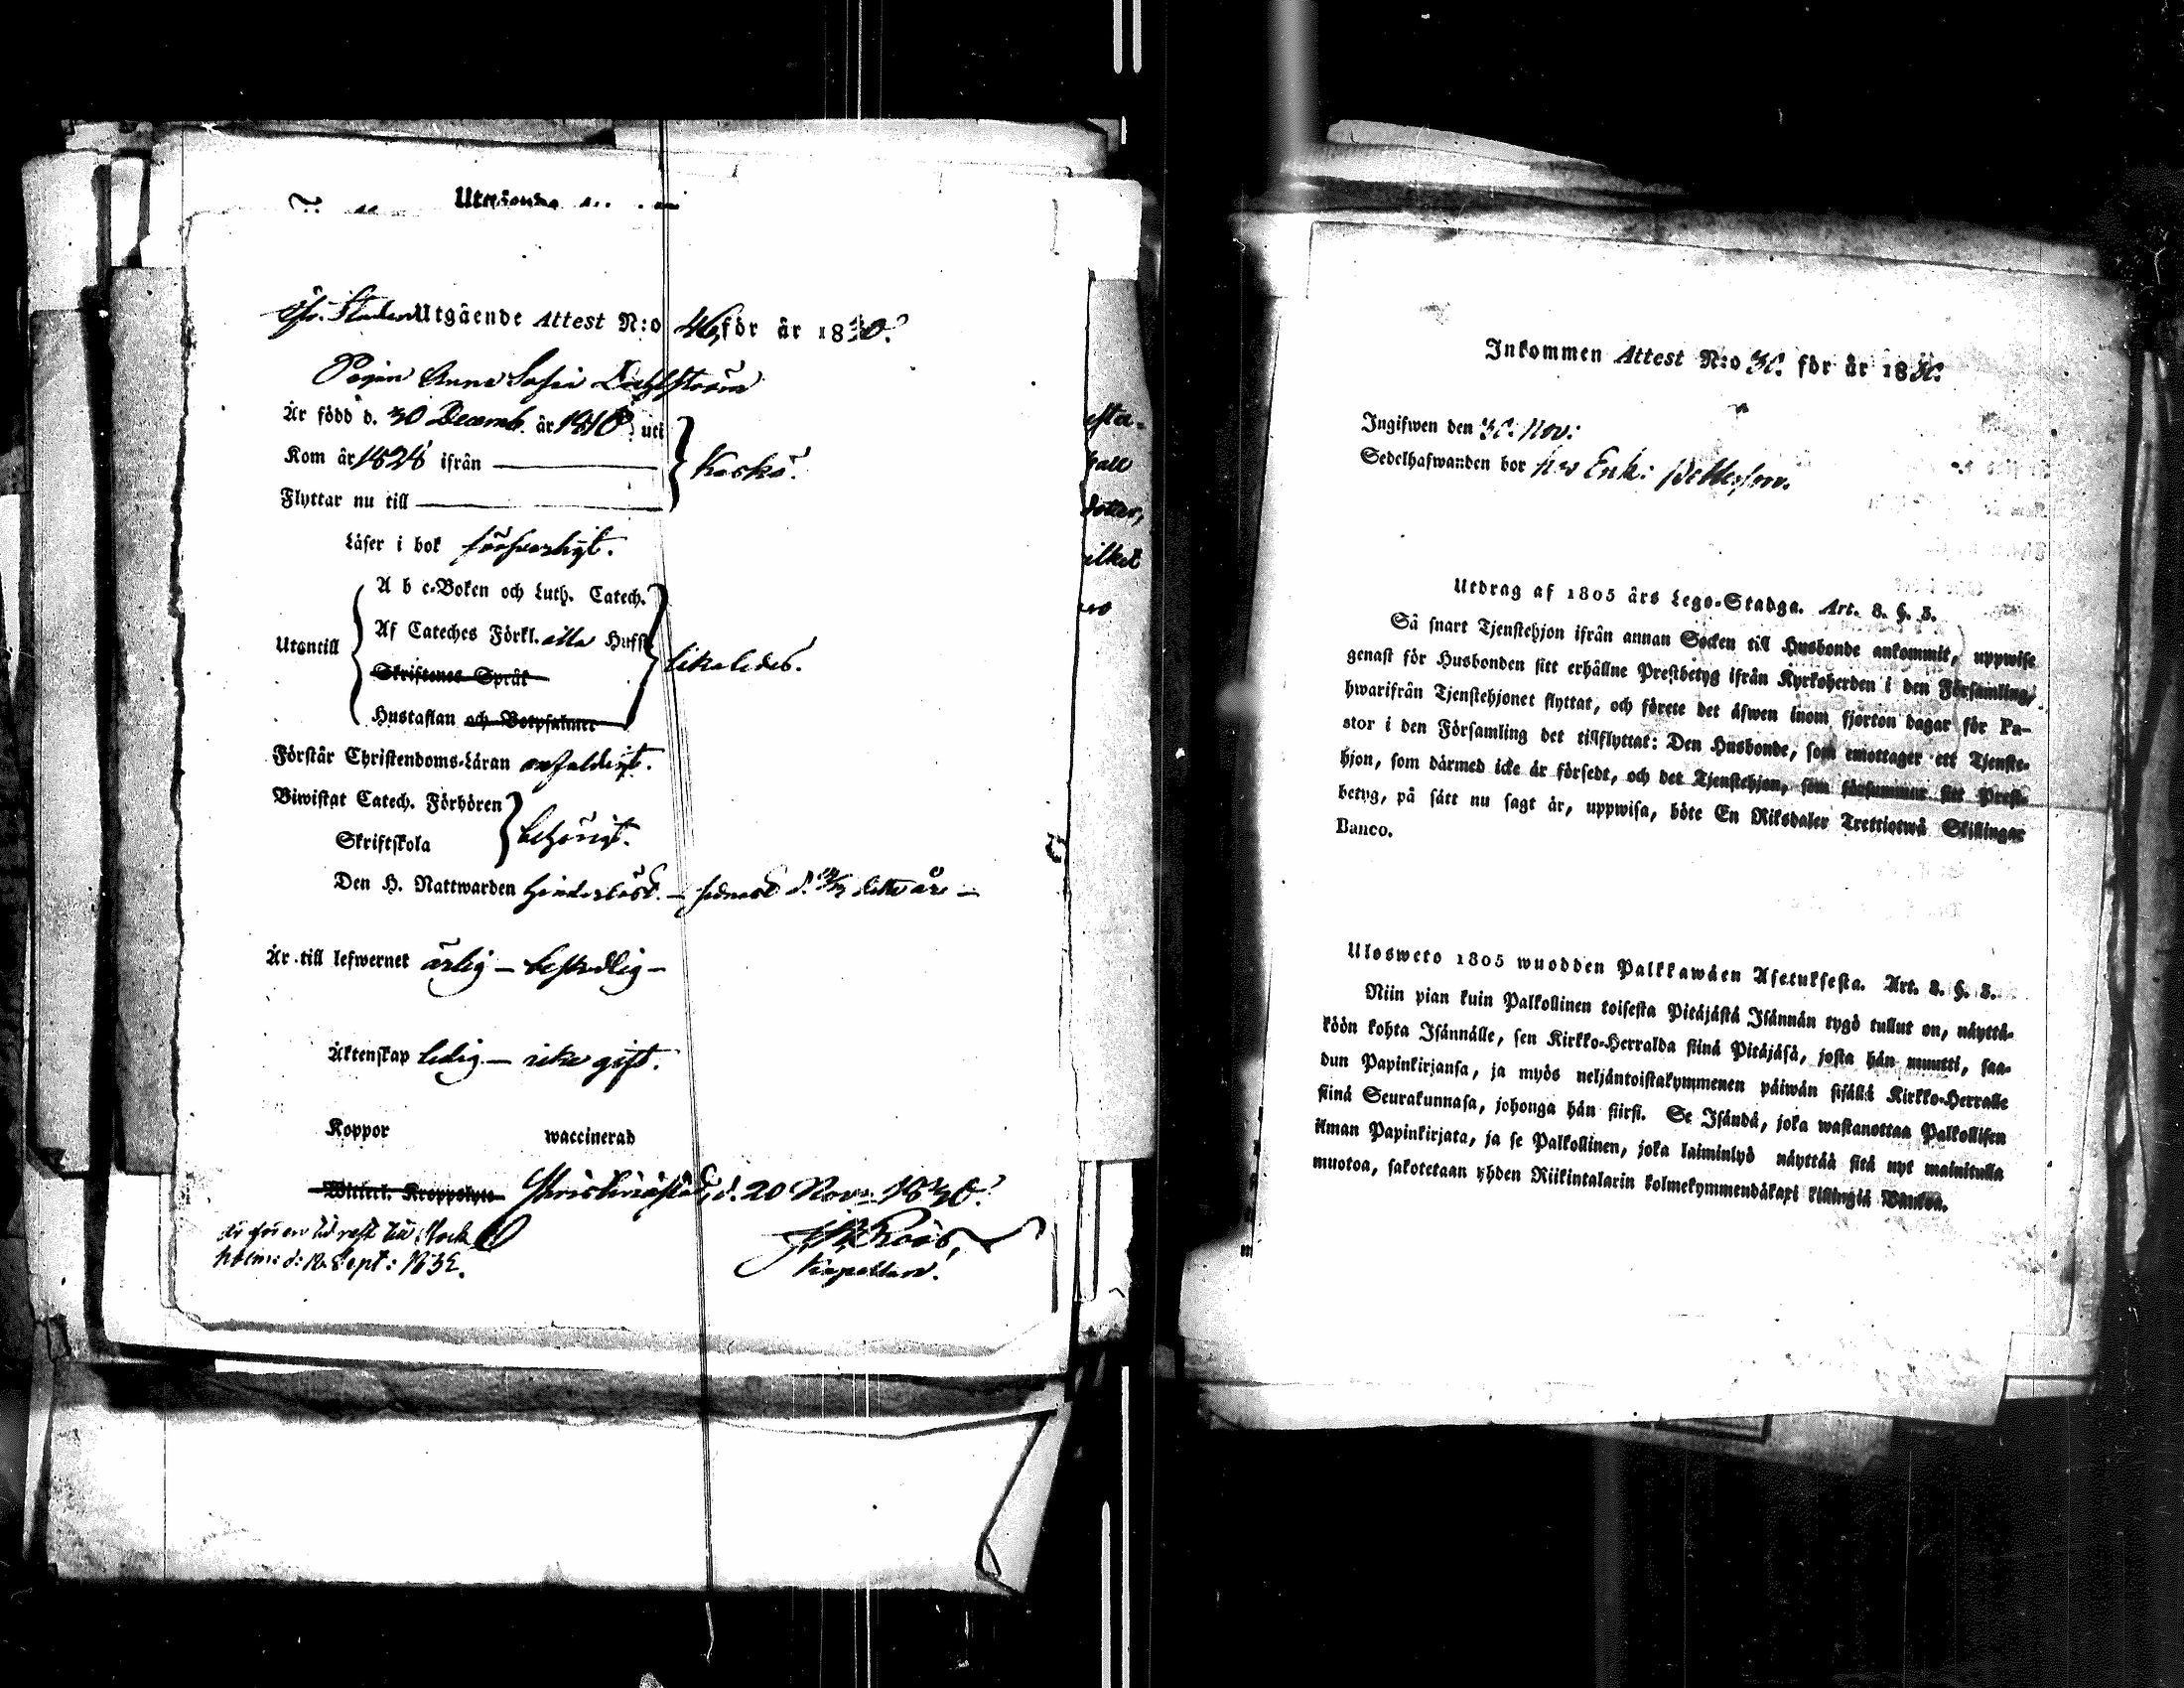 Utgående
fr. Staden Utgående Attest N:o 46, för år 1830.
Pigan Anna Sofia Dahlström
Är född d. 30 Decemb. år 1810 uti
Kom år 1828 ifrån
Kaskö.
Flyttar nu till
Läser i bok försvarligt.
A b c-Boken och Luth. Catech.
Af Cateches Förkl. alla Hufst.
Utantill
likaledes.
Skriftenes Språk
Hustaflan och Botpsalmer
Förstår Christendoms-Läran enfaldigt.
Biwistat Catech. Förhören
behörigt.
Skriftskola
Den H. Nattwarden hinderlöst. – senast d. detta år –
Är till lefwernet ärlig – beskedlig –
Äktenskap ledig – icke gift.
Koppor waccinerad
Witterl. Kroppslyte Christinestad, d. 20 Nov. 1830.
J. Roos,
Kapellan.
till Stock
holm d: 18 Sept: 1832.
Inkommen Attest N:o 30. för år 1830.
Ingifwen den 30: Nov:
Sedelhafwanden bor hos Enk: Pettersson.
Utdrag af 1805 års Lego-Stadga. Art. 8. §. 3.
Så snart Tjenstehjon ifrån annan Socken till Husbonde ankommit, uppwise
genast för Husbonden sitt erhållne Prestbetyg ifrån Kyrkoherden i den Församling,
hwarifrån Tjenstehjonet flyttat, och förete det äfwen inom fjorton dagar för Pa-
stor i den Församling det tillflyttat: Den Husbonde, som emottager ett Tjenste-
hjon, som därmed icke är försedt, och det Tjenstehjon, som försummar sitt Prest-
betyg, på sätt nu sagt är, uppwisa, böte En Riksdaler Trettiotwå Skillingar
Banco.
Ulosweto 1805 wuodden Palkkawäen Asetuksesta. Art. 8. §. 3.
Niin pian kuin Palkollinen toisesta Pitäjästä Isännän tygö tullut on, näyttä-
köön kohta Isännälle, sen Kirkko-Herralda siinä Pitäjäsä, josta hän muutti, saa-
dun Papinkirjansa, ja myös neljäntoistakymmenen päiwän sisällä Kirkko-Herralle
siinä Seurakunnasa, johonga hän siirsi. Se Isändä, joka wastanottaa Palkollisen
ilman Papinkirjata, ja se Palkollinen, joka laiminlyö näyttää sitä nyt mainitulla
muotoa, sakotetaan yhden Riikintalarin kolmekymmendäkaxi killingiä Bankoa.